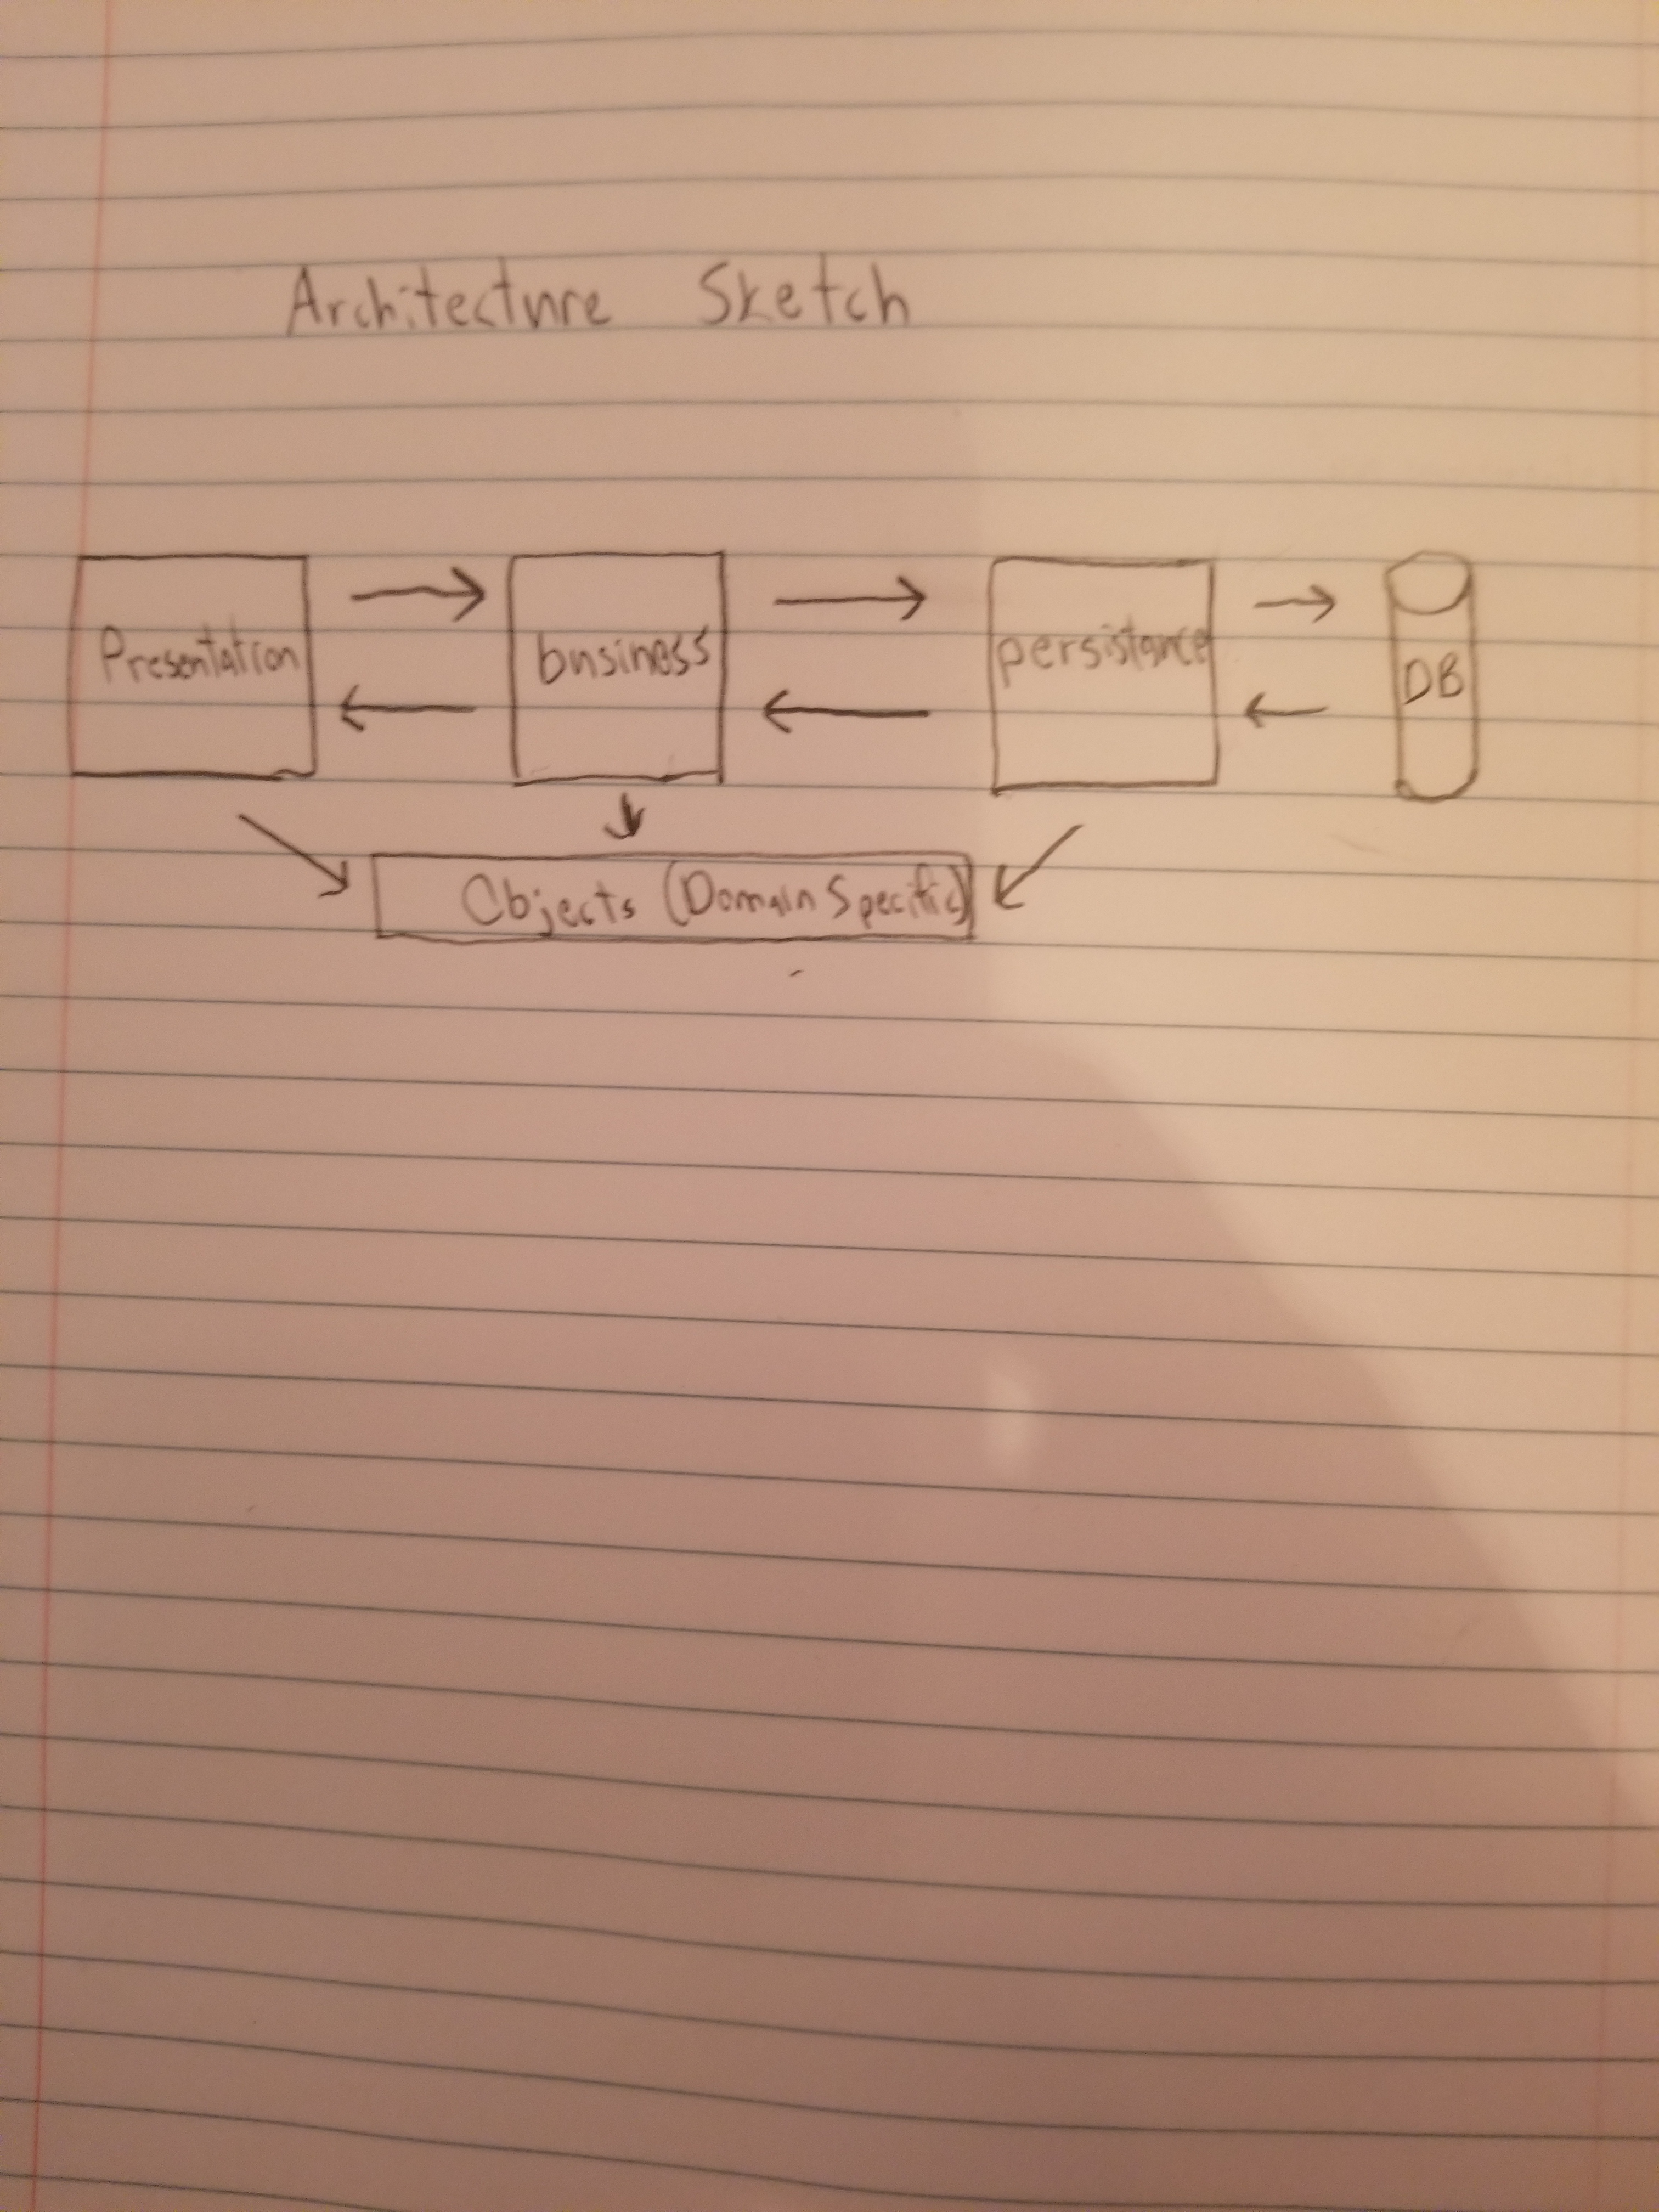 Architecture Sketch
Presentation
business
persistance
DB
Objects (Domain Specific)